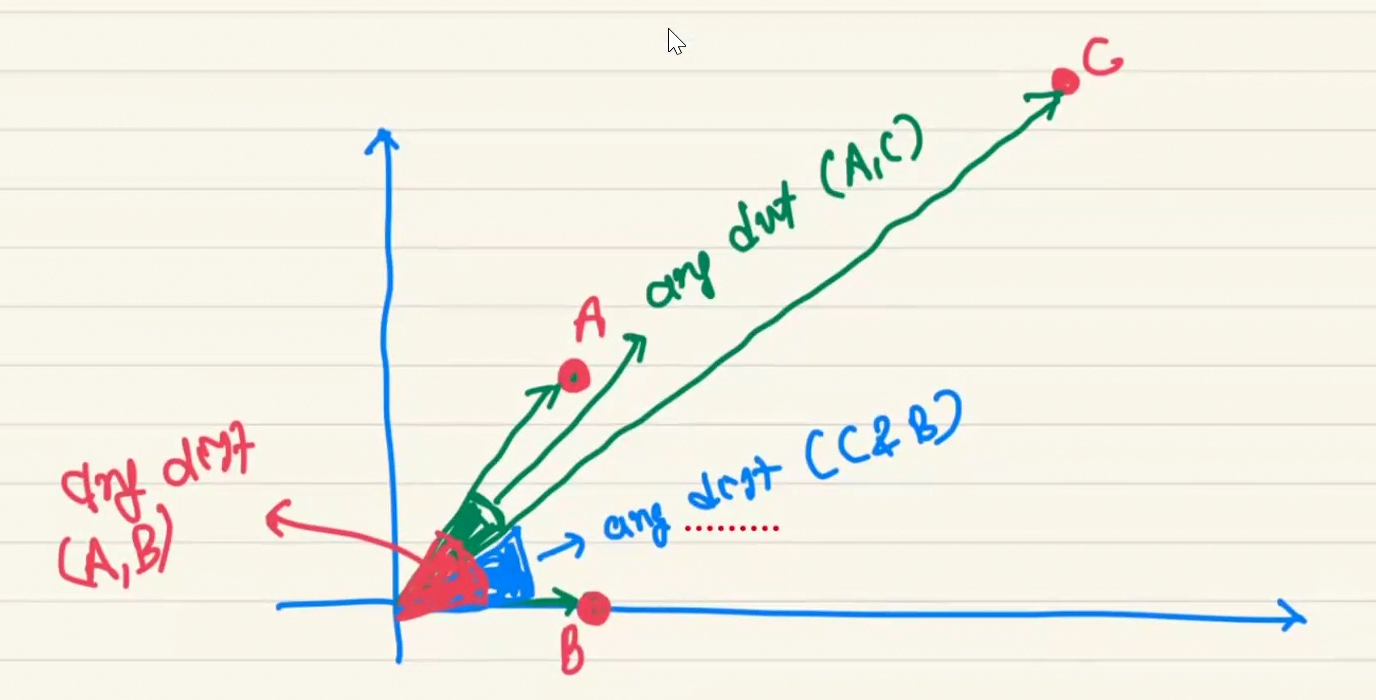 C
ang dist (A,C)
A
ang dist (C & B)
ang dist
(A,B)
B